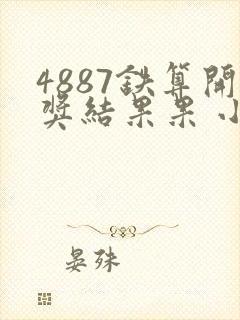 4887鉄算開
奖結果果小
晏殊